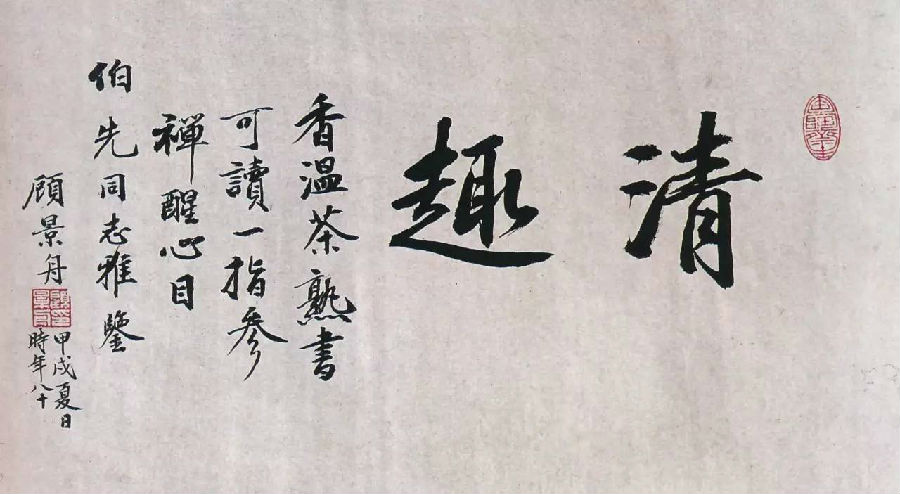 清趣
香溫茶熟書
可讀一指參
禪醒心目
伯先同志雅鑒
顧景舟
甲戌夏日
時年八十